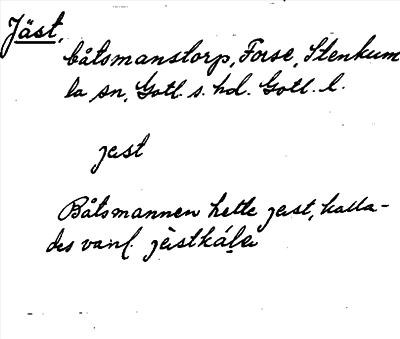 Jäst,
båtsmanstorp, Forse, Stenkum
la sn, Gotl. s. hd. Gotl. l.
jæst
Båtsmannen hette jæst, kalla-
des vanl. jästkála